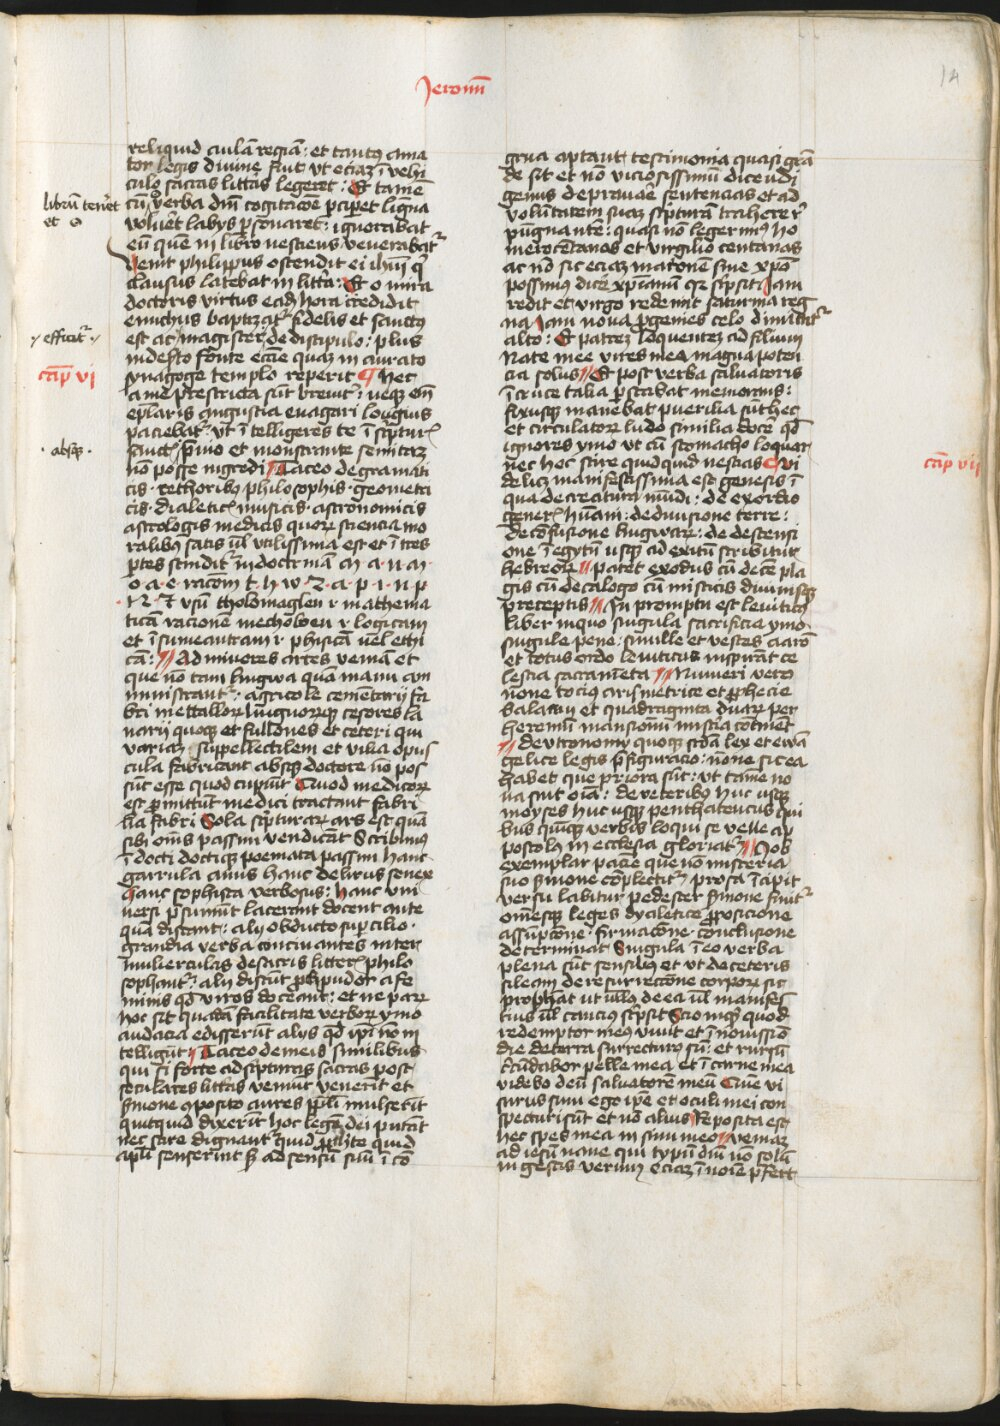 Jeronī
14
reliquid aulā regiā: et tantꝰ ama
tor legis divine fuit ut eciaꝫ ī vehi
culo sacras litt̄as legeret: Et tamē
librū tenēt
et
cū verba dnī cogitacōne p̄ciperet lignua
volueret labijs ꝑsonaret: ignorabat
eū quē in libro nesciens venerabat᷑
Venit philippus ostendit ei ihm̄ qͥ
clausus latebat in litt̄a: Et o mira
doctoris virtus eadē hora credidit
enuchus baptizat᷑ fidelis et sanctꝰ
·/· efficit᷑ ·/·
est ac magister de discipulo: plus
in deserto fonte ecc̄ie quaꝫ in aurato
cap̄ vi
synagoge templo reperit ¶ Hec
a me prestricta sūt brevit᷑: neqꝫ em̄
ep̄laris angustia evagari longius
paciebat᷑: ut ī telligeres te ī scriptur᷑
· absqꝫ ·
sanct᷑ p̄vio et monstrante semitaꝫ
nō posse ingredi Taceo de gramati
cis · rethoribꝰ philosophis · geometri
cis · dialetic᷑ musicis · astronomicis
astrologis medicis quoꝝ sciencia mo
ralibꝰ satis ūl utilissima est et ī tres
ꝑtes scindit᷑ in doctrinam
o · a · e · racōm t · h w · z · a · p · i · n · p
usū tholomaglen r mathema
ticā racionem mecholoen r logicam
et r phisicā uel ethi
cā: Ad minores artes veniā et
que nō tam lingwa quā manu am
ministrant᷑ · agricole cementarij fa
bri mettalloꝝ lignorūqꝫ cesores la
narij quoqꝫ et fullones et ceteri qui
variaꝫ suppellectilem et vilia opus
cula fabricant absqꝫ doctore nō pos
sūt esse quod cupiūt Quod medicoꝝ
est ꝓmittūt medici tractant fabri
lia fabri Sola scripturaꝝ ars est quā
sibi om̄s passim vendicāt Scribimꝰ
ī docti doctiqꝫ poemata passim hanc
garrula anus hanc delirus senex
hanc sophista verbosus: hanc uni
versi p̄sumūt lacerant docent ante
quā discant: alij obducto suꝑcilio ·
grandia verba trutinantes inter
mulierculas de sacris litter᷑ philo
sophant᷑: alij discūt proh pudor a fe
minis qd̄ viros doceant: et ne paꝝ
hoc sit quadā facilitate verboꝝ ymo
audacia edisserūt alijs qd̄ ip̄i nō in
telligūt Taceo de meis similibus
qui si forte ad scripturas sacras post
seculares litt̄as venerīt et
s̄mone ꝯposito aures ppli mulserīt
quitquid dixerīt hoc legē dei putāt
nec scire dignant᷑ quid ꝓphete quid
apli senserint sꝫ ad sensū suū ī cō
grua aptant testimonia quasi grā
de sit et nō viciosissimū dicendi
genus depravare sentencias et ad
volūtatem suaꝫ scripturā trahere r̄
pūgnante: quasi nō legerimꝰ ho
merocentonas et virgilio centonas
ac nō sic eciaꝫ maronem sine xpo
possimus dicē xp̄ianū qꝛ scripsit Iam
redit et virgo redeunt saturnia reg
na Iam nova ꝓgenies celo dimittit᷑
alto: Et patreꝫ loquenteꝫ ad filium
Nate mee vires mea magna poten
cia solus Et post verba salvatoris
ī cruce talia ꝑstabat memorans:
fixusqꝫ manebat puerilia sūt hec
et circulatoꝝ ludo similia docē qd̄
ignores ymo ut cū stomacho loquar
cap̄ vii
nec hoc scire quidquid nescias Vi
delicꝫ manifestissima est genesis ī
qua de creatura mūdi: de exordio
gener᷑ hūani: de divisione terre:
de cōfusione lingwaꝝ: de descensi
one ī egyptū usqꝫ ad exitū scribitur
hebreoꝝ patet exodus cū decē pla
gis cū decalogo cū misticis divinisqꝫ
preceptis In promptu est leviticꝰ
liber in quo singula sacrificia ymo
singule pene sillibe et vestes aarō
et totus ordo leviticus inspirāt ce
lestia sacrameta Numeri vero
nōne tocius arismetrice et ꝓphecie
balaam et quadraginta duaꝝ per
heremū mansionū mist̄ia cōtinēt
deutronomij quoqꝫ scd̄a lex et ewā
gelice legis p̄figuracio: nōne sic ea
habet que priora sūt: ut tamē no
va sint oīa: de veteribꝰ huc usqꝫ
moyses huc usqꝫ penthateucus qui
bus quinqꝫ verbis loqui se velle ap
postolꝰ in ecclesia gloriat᷑ Iob
exemplar pacīe que nō misteria
suo s̄mone cōplectit᷑ prosa īcipit
versu labitur pedester s̄mone finit᷑
om̄esqꝫ leges dyaletice ꝓposicione
assūpcōne · firmacōne · cōnclusione
determinat Singula ī eo verba
plena sūt sensibus et ut de ceteris
sileam de resurrectōne corpoꝝ sic
prophetat ut ullo de ea ūl manifes
tius ūl caucius scripsit Scio inqͥ quod
redemptor meus vivit et ī novissīo
die de terra surrecturꝰ sū: et rursū
ꝯcūdabor pelle mea et ī carne mea
videbo deū salvatorē meū Quē vi
surus sum ego ip̄e et oculi mei con
specturi sūt et nō alius Reposita est
hec spes mea in sinu meo veniaꝫ
ad iesū naue qui typū dn̄i nō solū
in gestis verum eciaꝫ ī noīe p̄fert